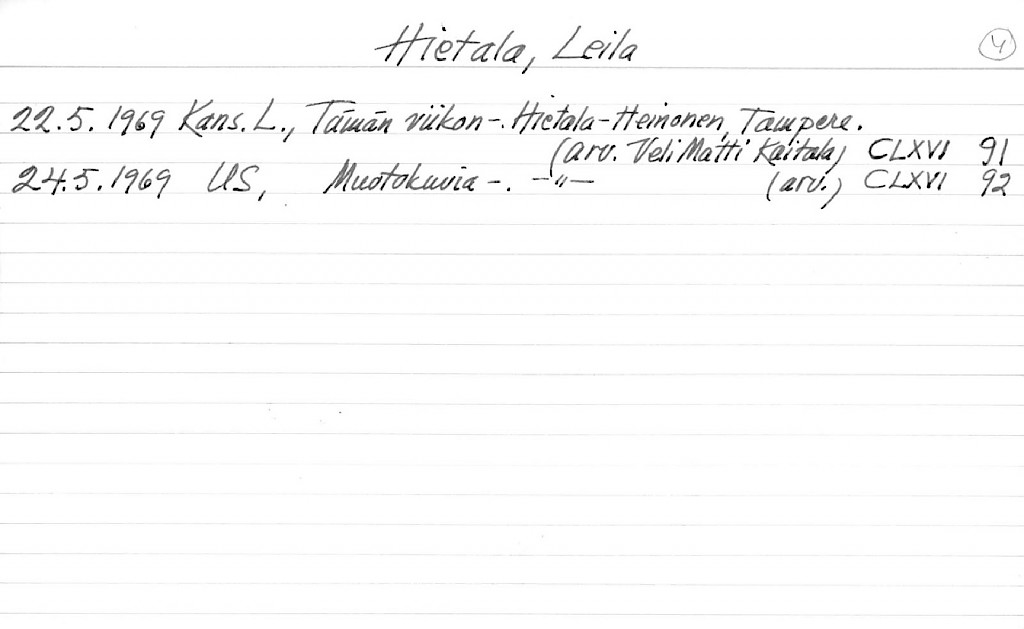 Hietala, Leila
4
22.5.1969 Kans. L., Tämän viikon -. Hietala-Heinonen, Tampere.
(arv. Veli Matti Kaitala) CLXVI 91
24.5.1969 US, Muotokuvia -. -"- (arv.) CLXVI 92